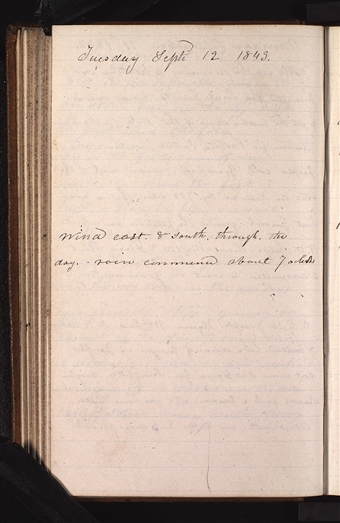 Tuesday Septr 12 1843.
Wind east. & south. through. the
day. - rain commencd about 7 oclock